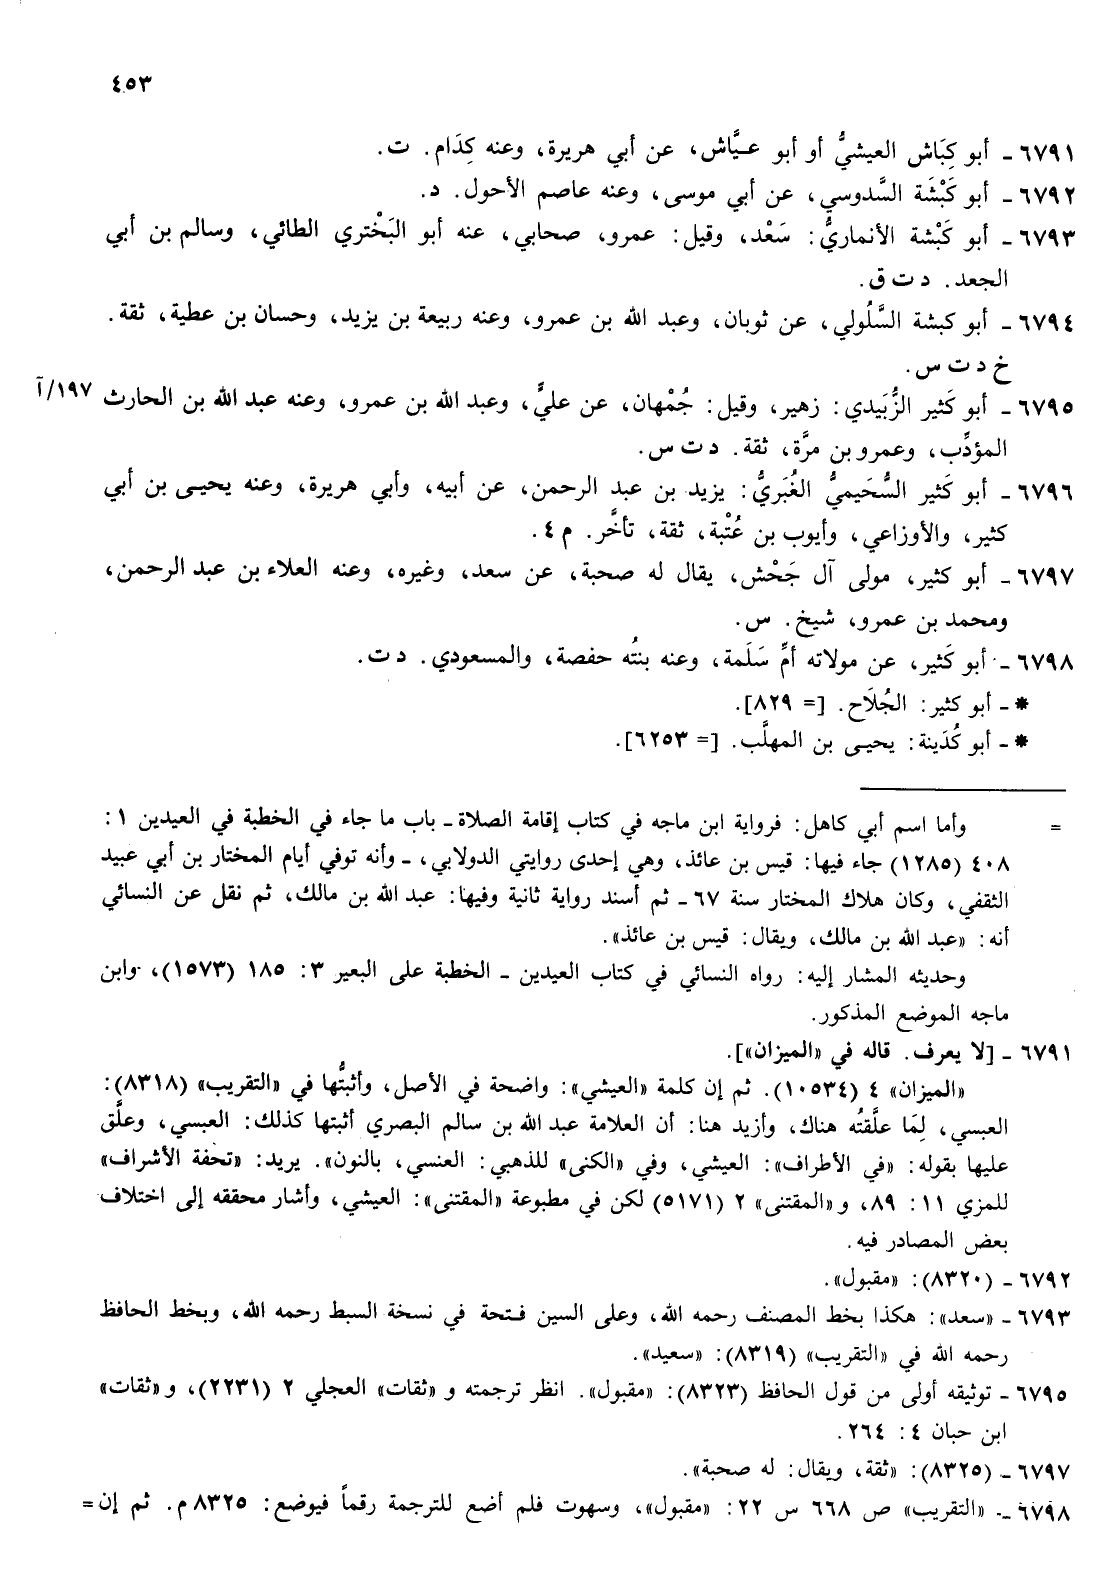 ٤٥٣
٦٧٩١ ـ أبو كِبَاش العيشيُّ أو أبو عيَّاش، عن أبي هريرة، وعنه كِدَام. ت.
٦٧٩٢ ـ أبو كَبْشَة السَّدوسي، عن أبي موسى، وعنه عاصم الأحول. د.
٦٧٩٣ ـ أبو كَبْشة الأنماريُّ: سَعْد، وقيل: عمرو، صحابي، عنه أبو البَخْتري الطائي، وسالم بن أبي
الجعد. د ت ق.
٦٧٩٤ ـ أبو كبشة السَّلُولي، عن ثوبان، وعبد الله بن عمرو، وعنه ربيعة بن يزيد، وحسان بن عطية، ثقة.
خ د ت س.
٦٧٩٥ ـ أبو كثير الزُّبَيدي: زهير، وقيل: جُمْهان، عن عليٍّ، وعبد الله بن عمرو، وعنه عبد الله بن الحارث ١٩٧/آ
المؤدِّب، وعمرو بن مرَّة، ثقة. د ت س.
٦٧٩٦ ـ أبو كَثير السُّحَيميُّ الغُبَريُّ: يزيد بن عبد الرحمن، عن أبيه، وأبي هريرة، وعنه يحيى بن أبي
كثير، والأوزاعي، وأيوب بن عُتْبة، ثقة، تأخَّر. م ٤.
٦٧٩٧ ـ أبو كثير، مولى آل جَحْش، يقال له صحبة، عن سعد، وغيره، وعنه العلاء بن عبد الرحمن،
ومحمد بن عمرو، شيخ. س.
٦٧٩٨ ـ أبو كَثير، عن مولاته أمِّ سَلَمة، وعنه بنتُه حفصة، والمسعودي. د ت.
* ـ أبو كثير: الجُلَاح. [= ٨٢٩].
* ـ أبو كُدَينة: يحيى بن المهلَّب. [= ٦٢٥٣].
= وأما اسم أبي كاهل: فرواية ابن ماجه في كتاب إقامة الصلاة ـ باب ما جاء في الخطبة في العيدين ١:
٤٠٨ (١٢٨٥) جاء فيها: قيس بن عائذ، وهي إحدى روايتي الدولابي، ـ وأنه توفي أيام المختار بن أبي عبيد
الثقفي، وكان هلاك المختار سنة ٦٧ ـ ثم أسند رواية ثانية وفيها: عبد الله بن مالك، ثم نقل عن النسائي
أنه: «عبد الله بن مالك، ويقال: قيس بن عائذ».
وحديثه المشار إليه: رواه النسائي في كتاب العيدين ـ الخطبة على البعير ٣: ١٨٥ (١٥٧٣)، وابن
ماجه الموضع المذكور.
٦٧٩١ ـ [لا يعرف. قاله في «الميزان»].
«الميزان» ٤ (١٠٥٣٤). ثم إن كلمة «العيشي»: واضحة في الأصل، وأثبتُّها في «التقريب» (٨٣١٨):
العبسي، لِمَا علَّقتُه هناك، وأزيد هنا: أن العلامة عبد الله بن سالم البصري أثبتها كذلك: العبسي، وعلَّق
عليها بقوله: «في الأطراف»: العيشي، وفي «الكنى» للذهبي: العنسي، بالنون». يريد: «تحفة الأشراف»
للمزي ١١: ٨٩، و«المقتنى» ٢ (٥١٧١) لكن في مطبوعة «المقتنى»: العيشي، وأشار محققه إلى اختلاف
بعض المصادر فيه.
٦٧٩٢ ـ (٨٣٢٠): «مقبول».
٦٧٩٣ ـ «سعد»: هكذا بخط المصنف رحمه الله، وعلى السين فتحة في نسخة السبط رحمه الله، وبخط الحافظ
رحمه الله في «التقريب» (٨٣١٩): «سعيد».
٦٧٩٥ ـ توثيقه أولى من قول الحافظ (٨٣٢٣): «مقبول». انظر ترجمته و «ثقات» العجلي ٢ (٢٢٣١)، و«ثقات»
ابن حبان ٤: ٢٦٤.
٦٧٩٧ ـ (٨٣٢٥): «ثقة، ويقال: له صحبة».
٦٧٩٨ ـ «التقريب» ص ٦٦٨ س ٢٢: «مقبول»، وسهوت فلم أضع للترجمة رقماً فيوضع: ٨٣٢٥ م. ثم إن=